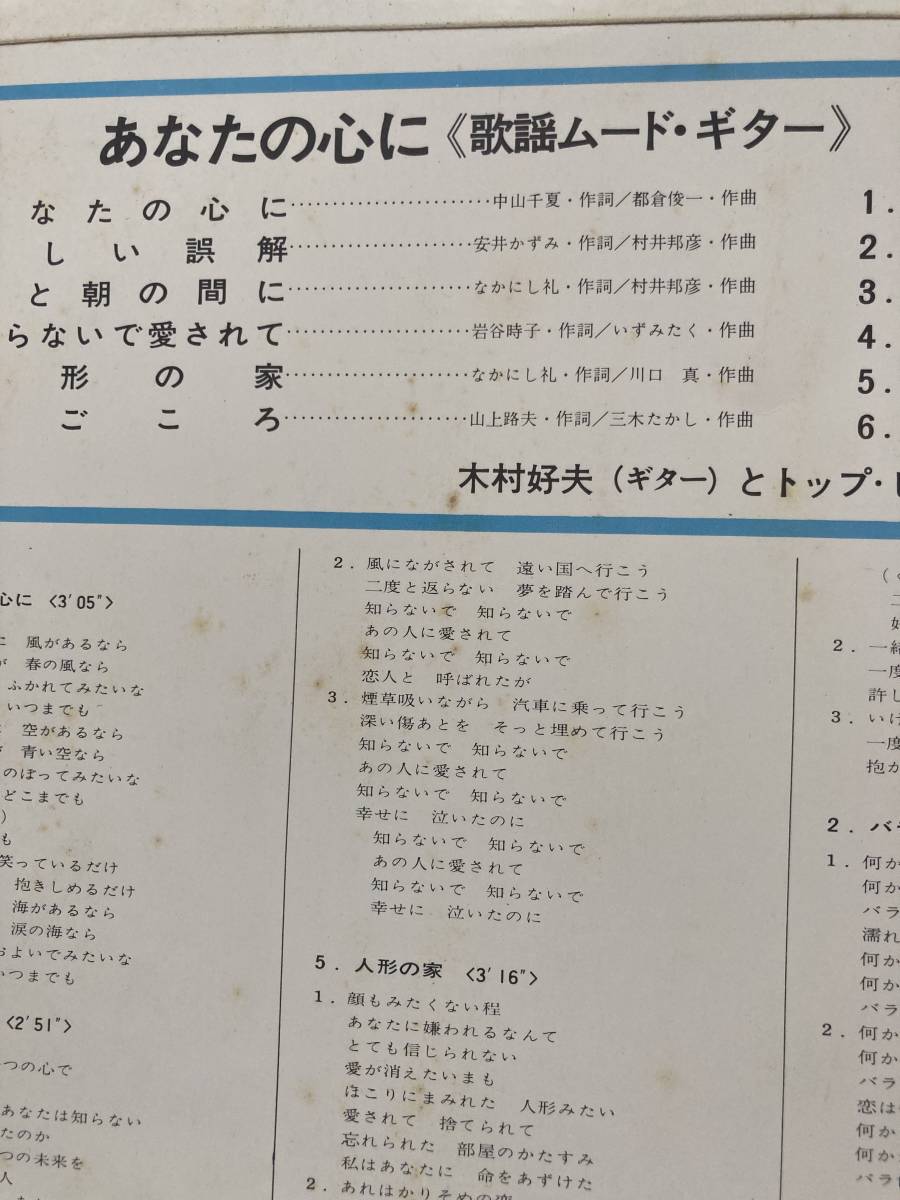 あなたの心に《歌謡ムード・ギター》
なたの心に……………………中山千夏・作詞／都倉俊一・作曲
しい誤解……………………安井かずみ・作詞／村井邦彦・作曲
と朝の間に……………………なかにし礼・作詞／村井邦彦・作曲
らないで愛されて……………………岩谷時子・作詞／いずみたく・作曲
形の家……………………なかにし礼・作詞／川口 真・作曲
ごころ……………………山上路夫・作詞／三木たかし・作曲
1.
2.
3.
4.
5.
6.
木村好夫（ギター）とトップ・
心に 〈3′05″〉
風があるなら
春の風なら
ふかれてみたいな
いつまでも
空があるなら
青い空なら
のぼってみたいな
どこまでも
）
も
笑っているだけ
抱きしめるだけ
海があるなら
涙の海なら
およいでみたいな
いつまでも
〈2′51″〉
つの心で
あなたは知らない
たのか
つの未来を
人
2. 風にながされて 遠い国へ行こう
二度と返らない 夢を踏んで行こう
知らないで 知らないで
あの人に愛されて
知らないで 知らないで
恋人と 呼ばれたが
3. 煙草吸いながら 汽車に乗って行こう
深い傷あとを そっと埋めて行こう
知らないで 知らないで
あの人に愛されて
知らないで 知らないで
幸せに 泣いたのに
知らないで 知らないで
あの人に愛されて
知らないで 知らないで
幸せに 泣いたのに
5. 人形の家 〈3′16″〉
1. 顔もみたくない程
あなたに嫌われるなんて
とても信じられない
愛が消えたいまも
ほこりにまみれた 人形みたい
愛されて 捨てられて
忘れられた 部屋のかたすみ
私はあなたに 命をあずけた
2. あれはかりそめの恋
（
2. 一緒
一度
許し
3. いけ
一度
抱か
2. バラ
1. 何か
何か
バラ
濡れ
何か
何か
バラ
2. 何か
何か
バラ
恋は
何か
何か
バラ